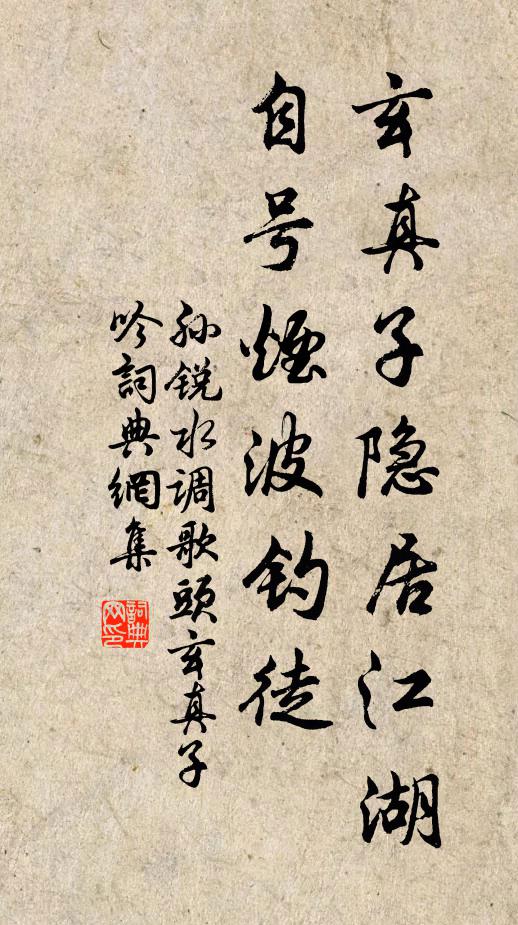 玄真子隐居江湖
自号烟波钓徒
孙锐水调歌头玄真子
吟詞典網集
詞典
网印